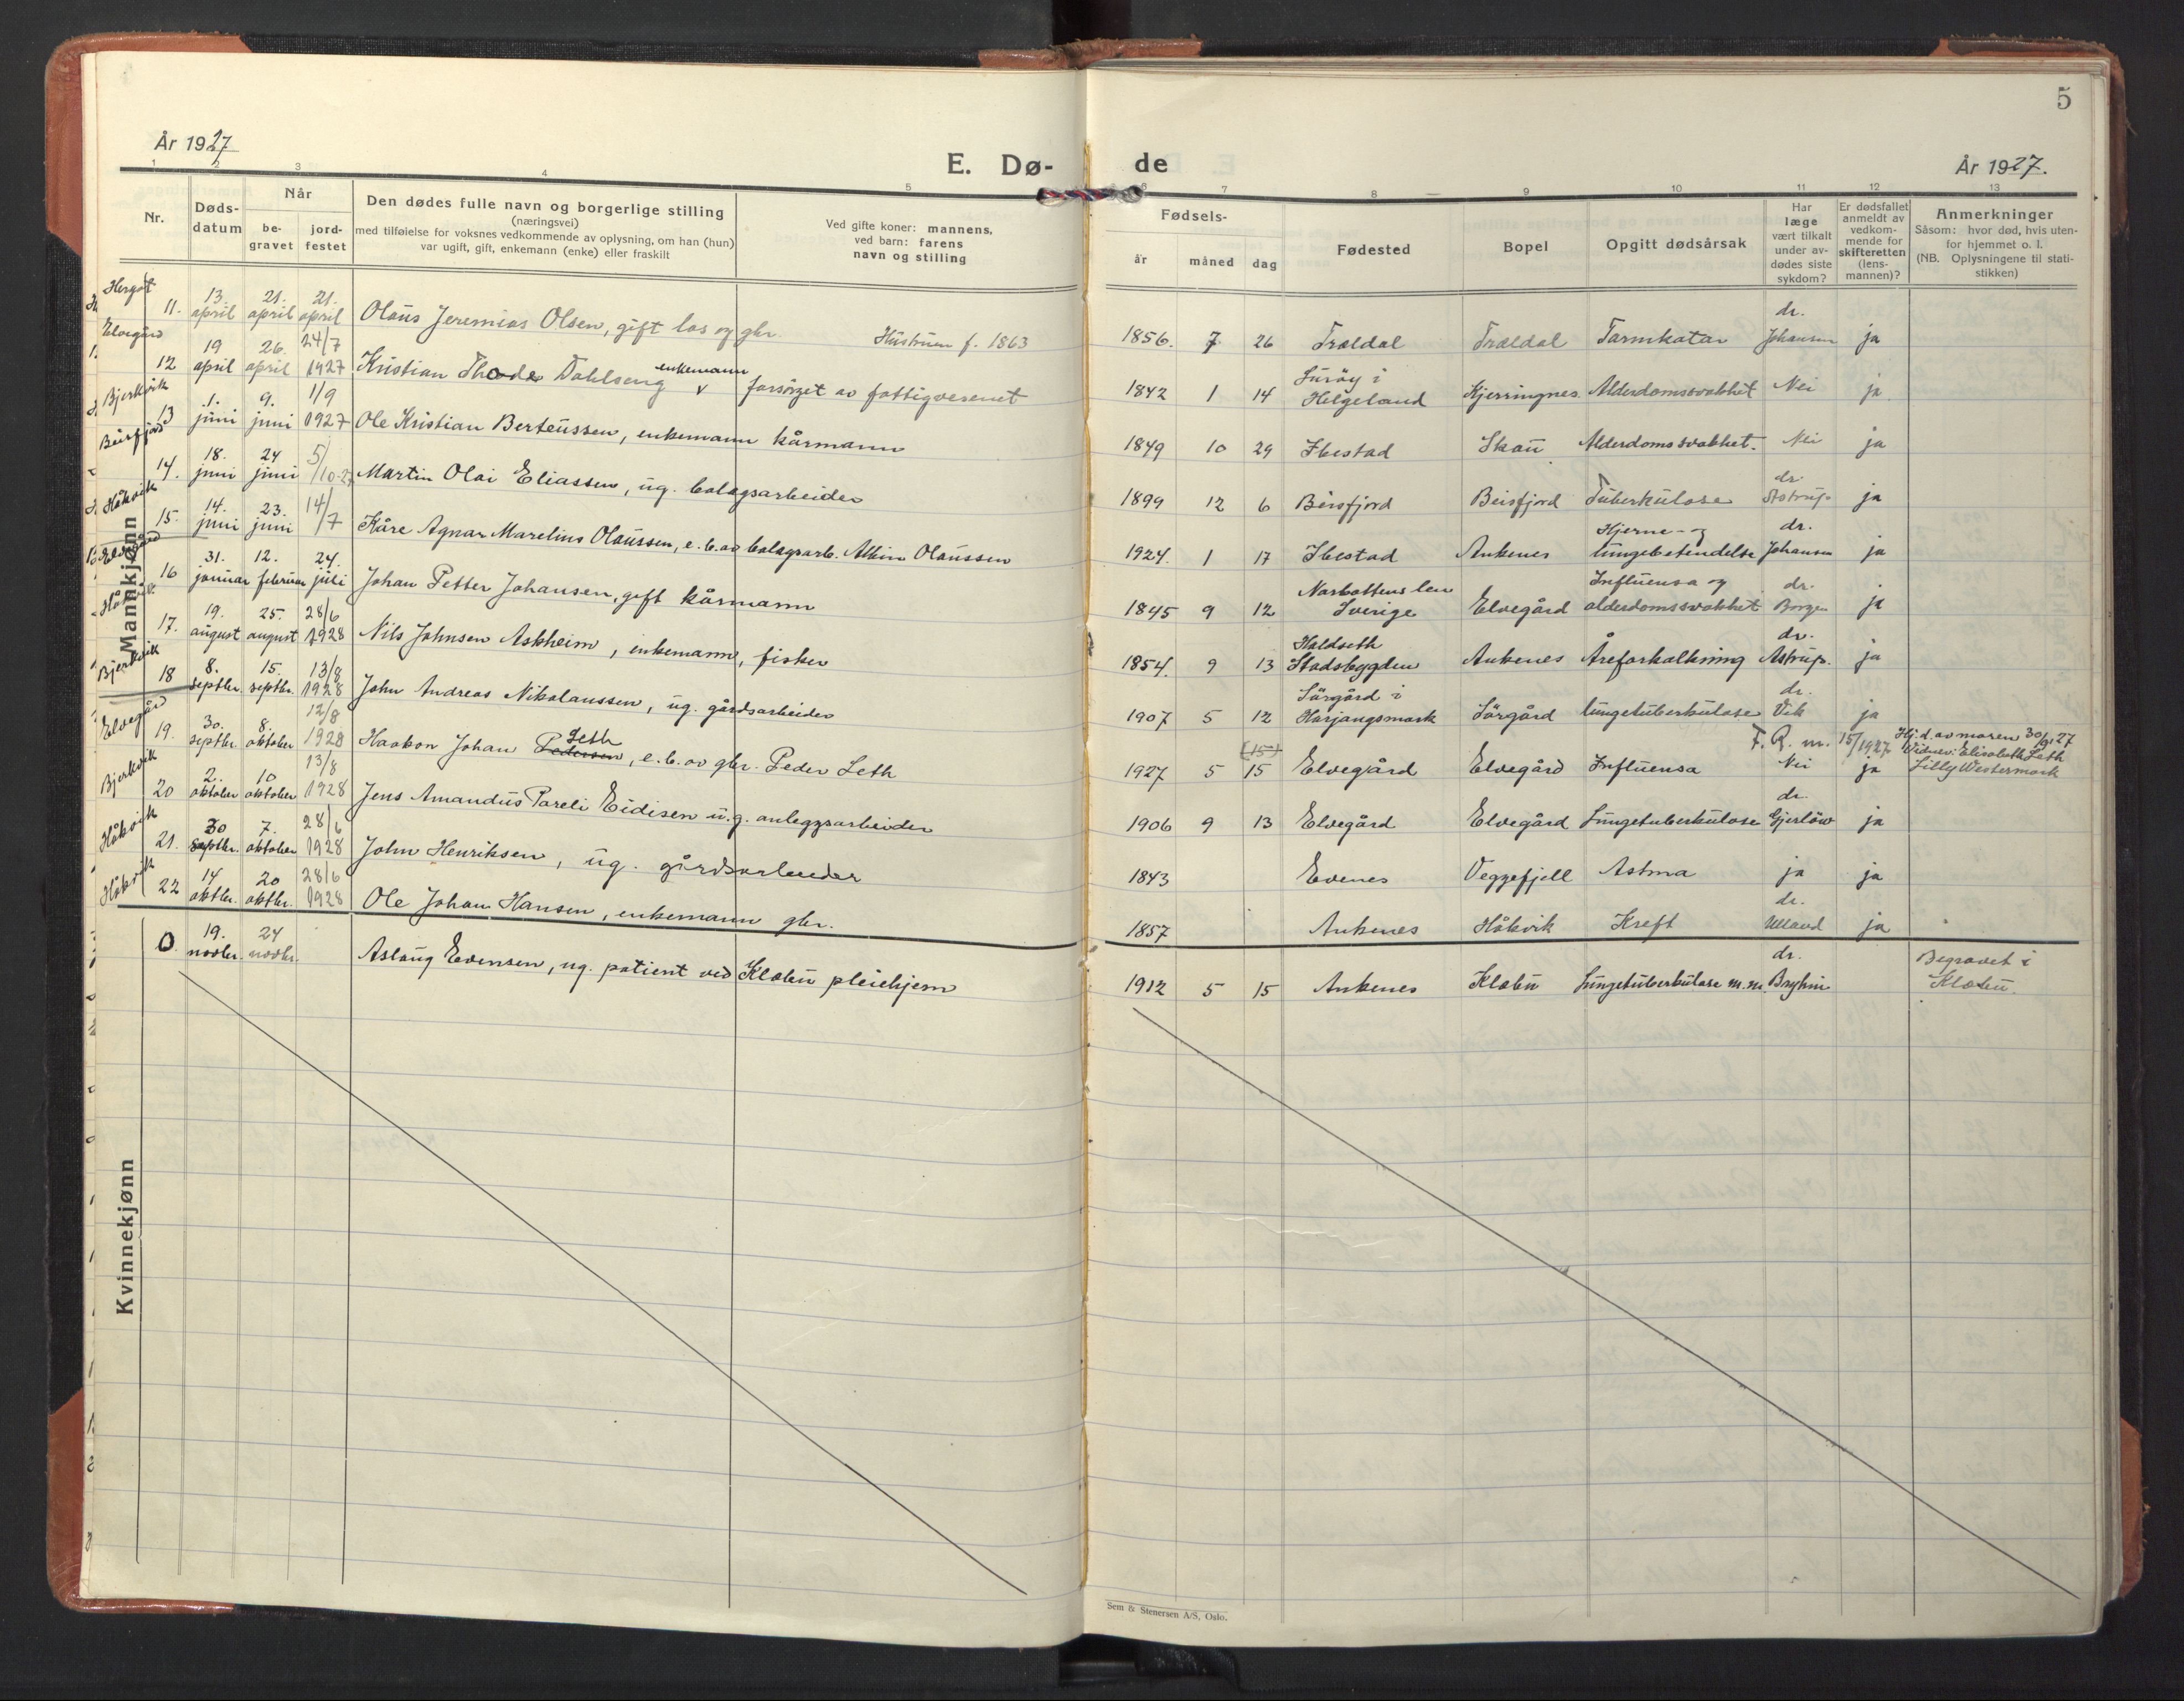 5
År 1927
E. Dø-
de
År 1927.
1 2 3 4 5 6 7 8 9 10 11 12 13
Nr.
Døds-
datum
Når
be-
gravet
jord-
festet
Den dødes fulle navn og borgerlige stilling
(næringsvei)
med tilføielse for voksnes vedkommende av oplysning, om han (hun)
var ugift, gift, enkemann (enke) eller fraskilt
Ved gifte koner: mannens,
ved barn: farens
navn og stilling
Fødsels-
år måned dag
Fødested
Bopel
Opgitt dødsårsak
Har
læge
vært tilkalt
under av-
dødes siste
sykdom?
Er dødsfallet
anmeldt av
vedkom-
mende for
skifteretten
(lens-
mannen)?
Anmerkninger
Såsom: hvor død, hvis uten-
for hjemmet o. l.
(NB. Oplysningene til stati-
stikken)
Mannkjønn
Hergot 11. 13. april 21. april 21. april Olaus Jeremias Olsen, gift los og gbr. Hustruen f. 1863 1856. 7 26 Trældal Trældal Tarmkatar dr. Johansen ja
Elvegård 12 19 april 26. april 24/7 1927 Kristian Thode Dahlseng enkemann forsörget av fattigvesenet 1842 1 14 Luröy i Helgeland Kjerringnes. Alderdomssvakhet Nei ja
Bjerkvik 13 1. juni 9. juni 1/9 1927 Ole Kristian Berteussen, enkemann kårmann 1849 10 29 Ibestad Skau Alderdomssvakhet. Nei ja
Beisfjord 14. 18. juni 24 juni 5/10-27 Martin Olai Eliassen, ug. bolagsarbeider 1899 12 6 Beisfjord Beisfjord Tuberkulose dr. Astrup ja
Håkvik 15. 14. juni 23. juni 14/7 Kåre Agnar Marelius Olaussen, e.b.av bolagsarb. Albin Olaussen 1924. 1 17 Ibestad Ankenes Hjerne- og lungebetendelse dr. Johansen ja
Elvegård 16 31. januar 12. februar 24. juli Johan Petter Johansen, gift kårmann 1845 9 12 Norbottens len Sverige Elvegård Influensa og alderdomssvakhet dr. Borgen ja
Håkvik 17. 19. august 25. august 28/6 1928 Nils Johnsen Askheim, enkemann, fisker 1854. 9 13 Haldseth Stadsbygden Ankenes Åreforkalkning dr. Astrup. ja
Bjerkvik 18 8. septbr. 15. septbr. 13/8 1928 John Andreas Nikolaussen, ug. gårdsarbeider 1907 5 12 Sörgård i Harjangsmark Sörgård lungetuberkulose dr. Vik ja
Elvegård 19. 30. septbr. 8. oktober 12/8 1928 Haakon Johan Pedersen Leth, e.b.av gbr. Peder Leth 1927 5 (15) 15 Elvegård Elvegård Influensa Nei ja F. R. m. 15/1927 Hj.d. av moren 30/9 27 Vidner: Elisabeth Leth Lilly Westermark
Bjerkvik 20 2. oktober 10 oktober 13/8 1928 Jens Amandus Pareli Eidisen u.g. anleggsarbeider 1906 9 13 Elvegård Elvegård Lungetuberkulose dr. Gjerlöw ja
Håkvik 21. 30 septbr. 7. oktober 28/6 1928 John Henriksen, ug. gårdsarbeider 1843 Evenes Veggefjell Astma ja ja
Håkvik 22 14 oktbr. 20 oktbr. 28/6 1928 Ole Johan Hansen, enkemann gbr. 1857 Ankenes Håkvik Kreft dr. Ulland ja
Kvinnekjønn
0. 19. novbr. 24 novbr. Aslaug Evensen, ug. patient ved Klæbu pleiehjem 1912 5 15 Ankenes Klæbu Lungetuberkulose m.m. dr. Bryhni Begravet i Klæbu.
Sem & Stenersen A/S, Oslo.